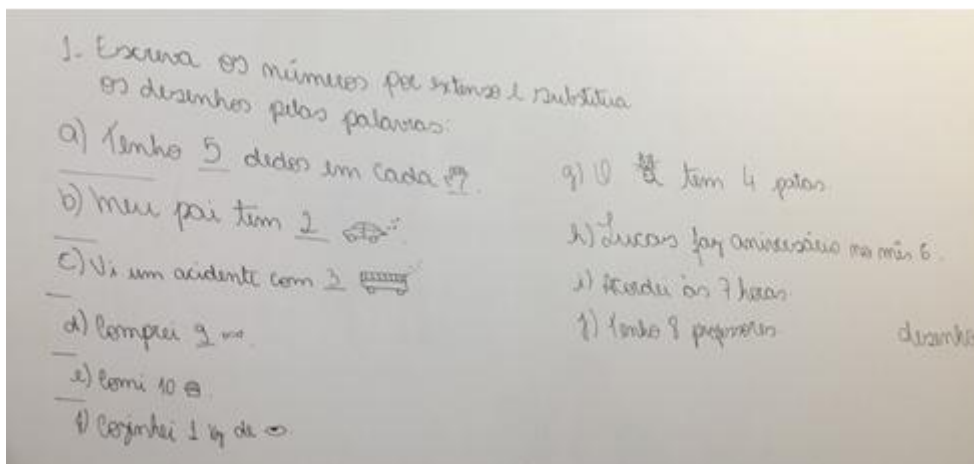 1. Escreva os números por extenso e substitua
os desenhos pelas palavras:
a) Tenho 5 dedos em cada
b) Meu pai tem 2
c) Vi um acidente com 3
d) Comprei 9
e) Comi 10
f) Cozinhei 1 kg de
g) O tem 4 patas
h) Lucas faz aniversário no mês 6.
i) Acordei às 7 horas
j) Tenho 8 professores
desenho